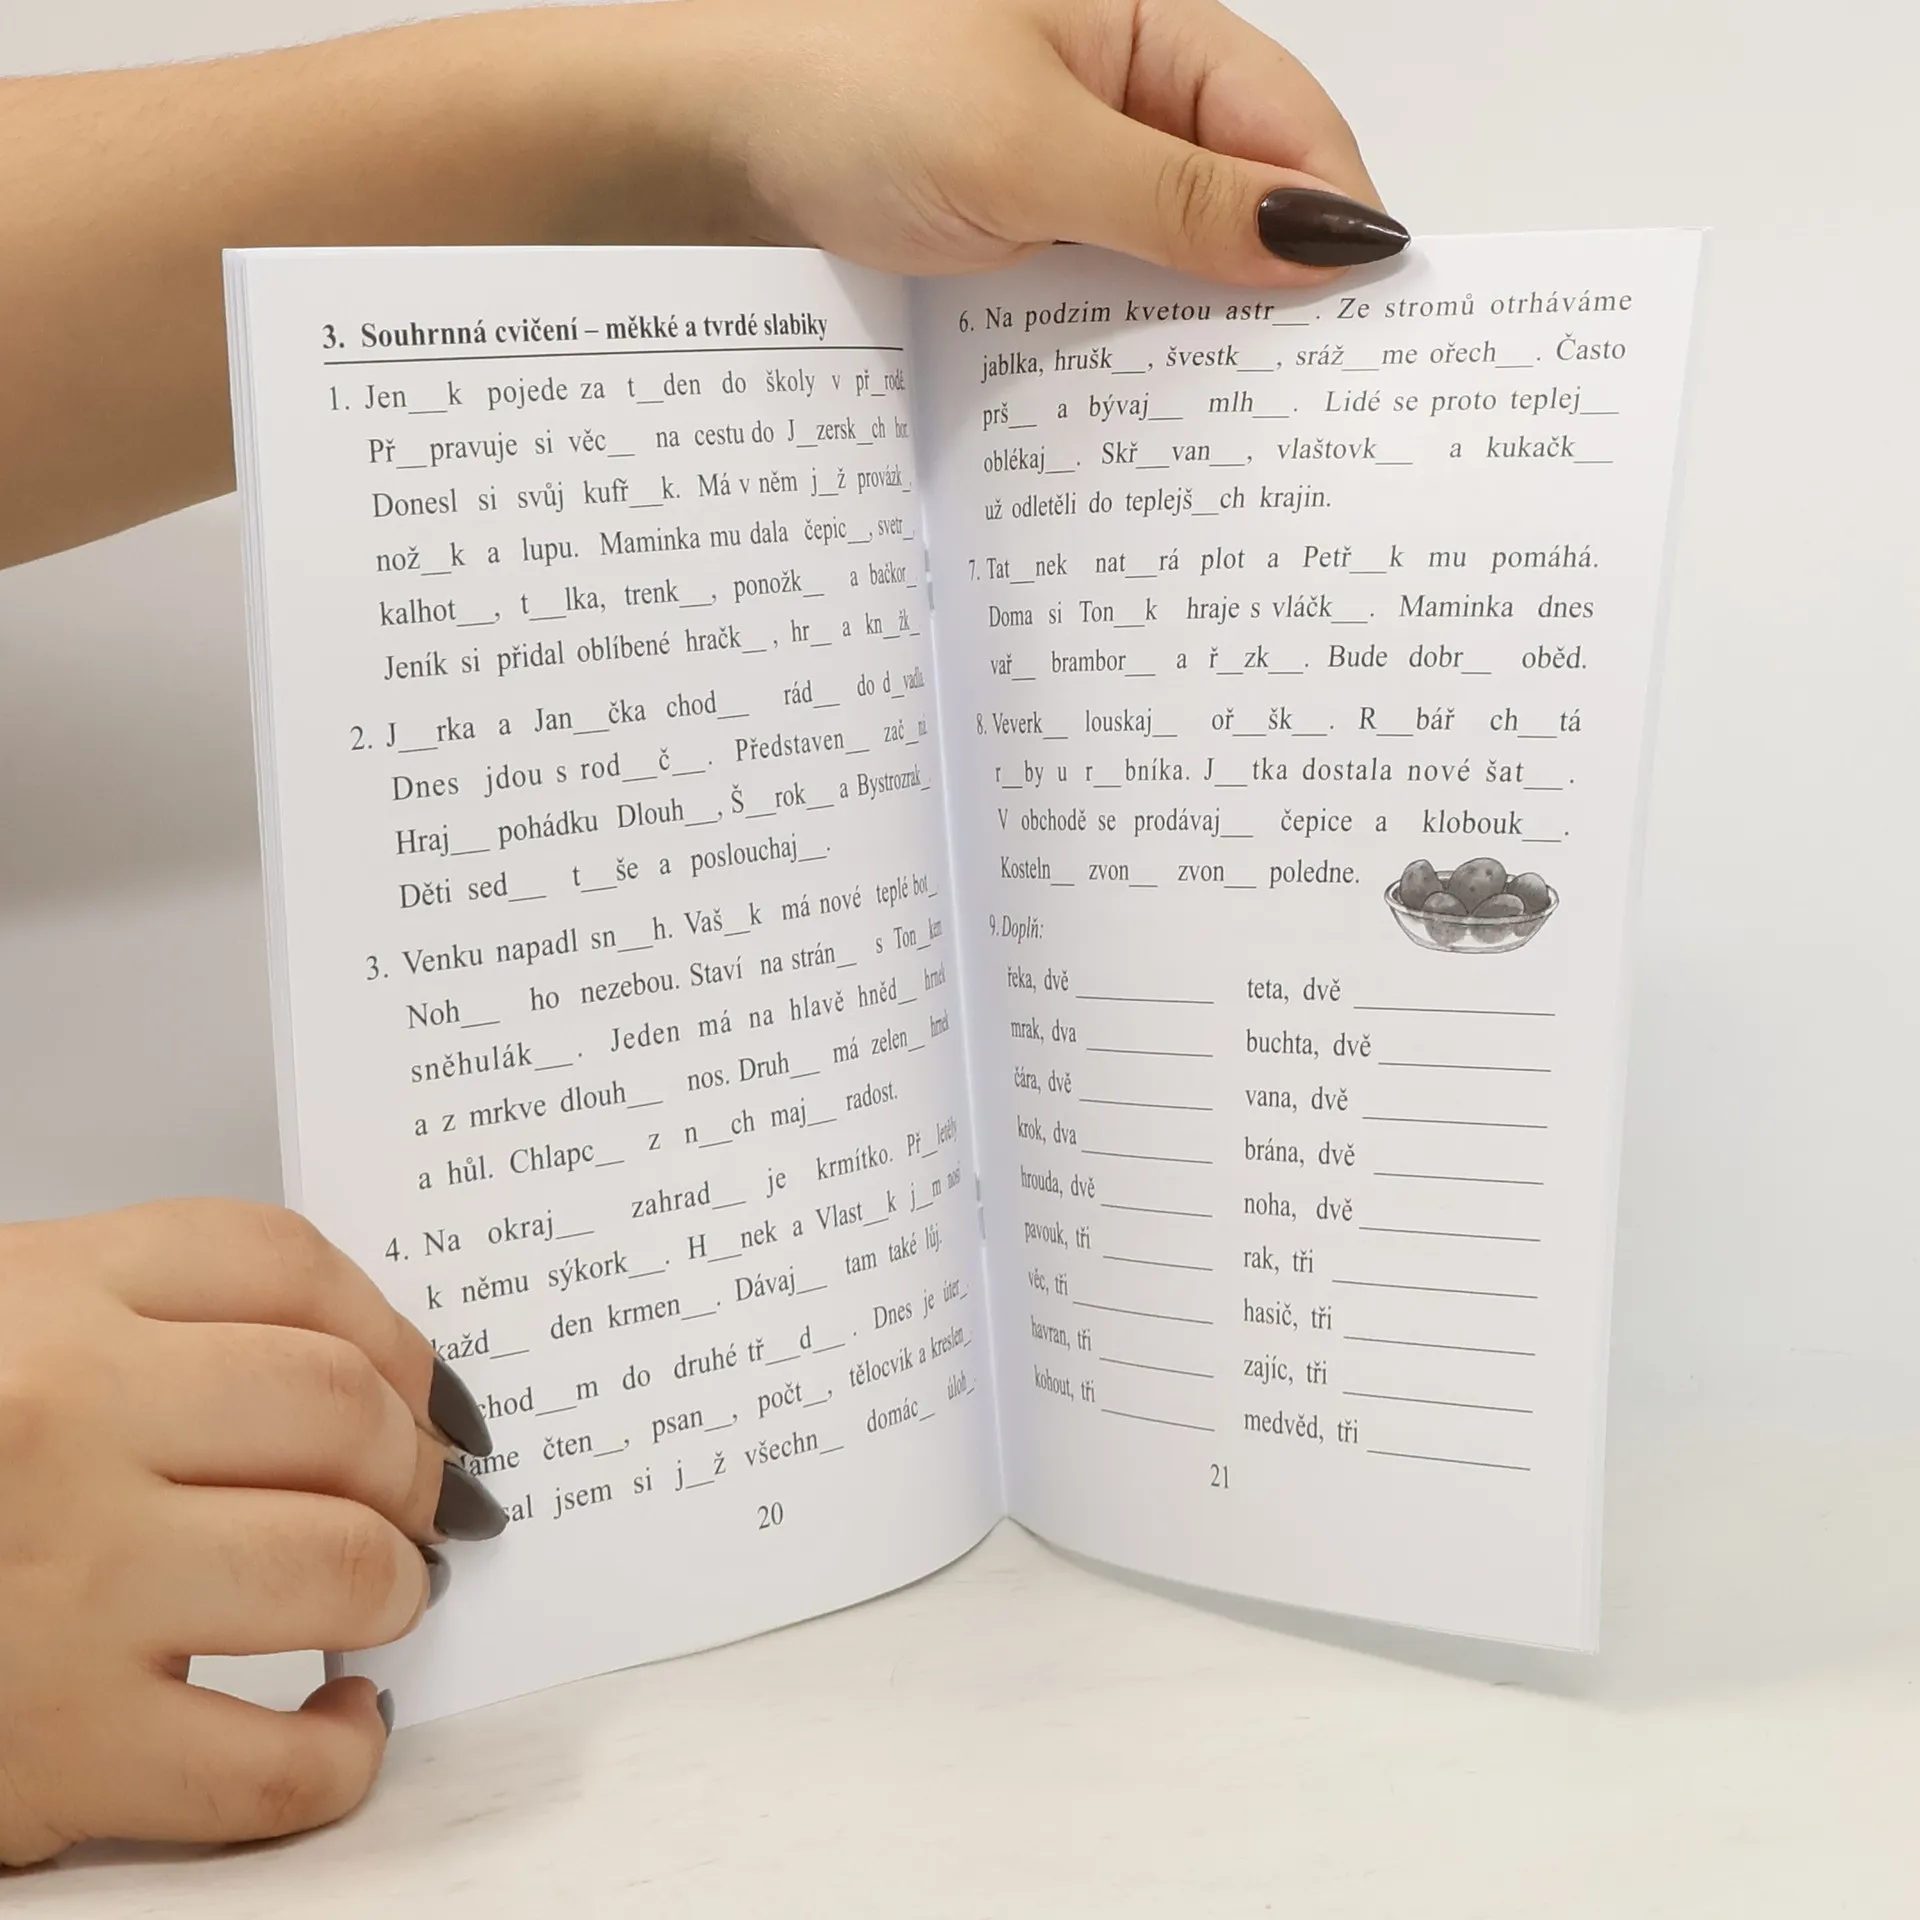 3. Souhrnná cvičení – měkké a tvrdé slabiky
1. Jen__k pojede za t__den do školy v př_rodě.
Př__pravuje si věc__ na cestu do J__zersk__ch hor.
Donesl si svůj kufř__k. Má v něm j__ž provázk_,
nož__k a lupu. Maminka mu dala čepic__, svetr_,
kalhot__, t__lka, trenk__, ponožk__ a bačkor_.
Jeník si přidal oblíbené hračk__, hr__ a kn__žk_
2. J__rka a Jan__čka chod__ rád__ do d_vadla.
Dnes jdou s rod__č__. Představen__ zač_ná.
Hraj__ pohádku Dlouh__, Š__rok__ a Bystrozrak_.
Děti sed__ t__še a poslouchaj__.
3. Venku napadl sn__h. Vaš__k má nové teplé bot_
Noh__ ho nezebou. Staví na strán__ s Ton_kem
sněhulák__. Jeden má na hlavě hněd__ hrnek
a z mrkve dlouh__ nos. Druh__ má zelen__ hrnek
a hůl. Chlapc__ z n__ch maj__ radost.
4. Na okraj__ zahrad__ je krmítko. Př__letěly
k němu sýkork__. H__nek a Vlast__k j__m nosí
každ__ den krmen__. Dávaj__ tam také lůj.
chod__m do druhé tř__d__. Dnes je úter_.
Máme čten__, psan__, počt__, tělocvik a kreslen_.
sal jsem si j__ž všechn__ domác__ úloh_.
20
6. Na podzim kvetou astr__. Ze stromů otrháváme
jablka, hrušk__, švestk__, sráž__me ořech__. Často
prš__ a bývaj__ mlh__. Lidé se proto teplej__
oblékaj__. Skř__van__, vlaštovk__ a kukačk__
už odletěli do teplejš__ch krajin.
7. Tat__nek nat__rá plot a Petř__k mu pomáhá.
Doma si Ton__k hraje s vláčk__. Maminka dnes
vař__ brambor__ a ř__zk__. Bude dobr__ oběd.
8. Veverk__ louskaj__ oř__šk__. R__bář ch__tá
r__by u r__bníka. J__tka dostala nové šat__.
V obchodě se prodávaj__ čepice a klobouk__.
Kosteln__ zvon__ zvon__ poledne.
9. Doplň:
řeka, dvě ________ teta, dvě ________
mrak, dva ________ buchta, dvě ________
čára, dvě ________ vana, dvě ________
krok, dva ________ brána, dvě ________
hrouda, dvě ________ noha, dvě ________
pavouk, tři ________ rak, tři ________
věc, tři ________ hasič, tři ________
havran, tři ________ zajíc, tři ________
kohout, tři ________ medvěd, tři ________
21